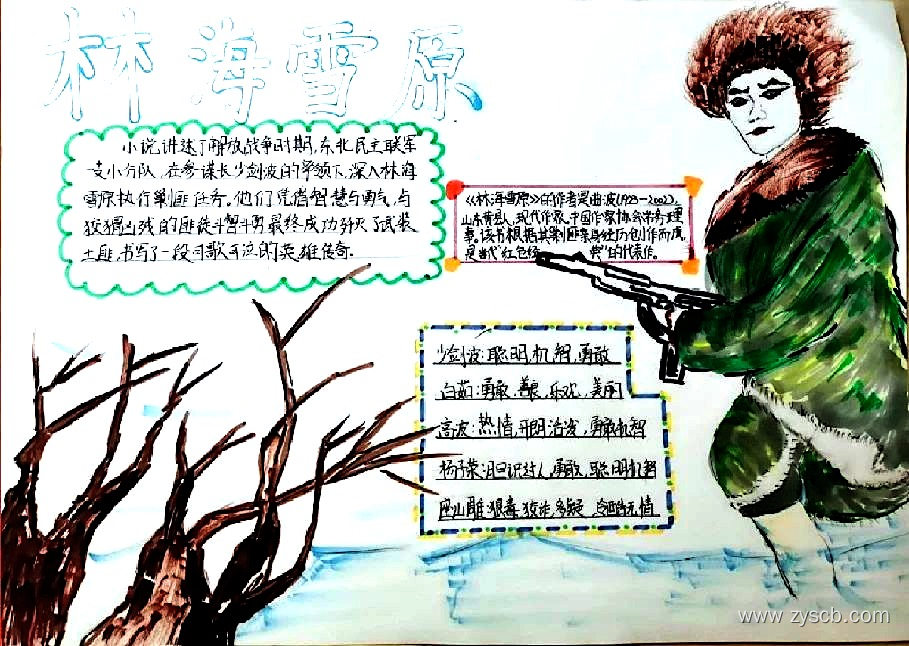 林海雪原
小说讲述了解放战争时期,东北民主联军
一支小分队,在参谋长少剑波的率领下,深入林海
雪原执行剿匪任务。他们凭借智慧与勇气,与
狡猾凶残的匪徒斗智斗勇最终成功歼灭了武装
土匪,书写了一段可歌可泣的英雄传奇.
《林海雪原》的作者是曲波(1923-2002),
山东黄县人,现代作家,中国作家协会常务理
事。该书根据其剿匪亲身经历创作而成,
是当代"红色经 典"的代表作。
少剑波:聪明,机智,勇敢
白茹:勇敢,善良,乐观,美丽
高波:热情,开朗活泼,勇敢机智
杨子荣:胆识过人,勇敢,聪明机智
座山雕:狠毒,狡诈,多疑,冷酷无情
www.zyscb.com